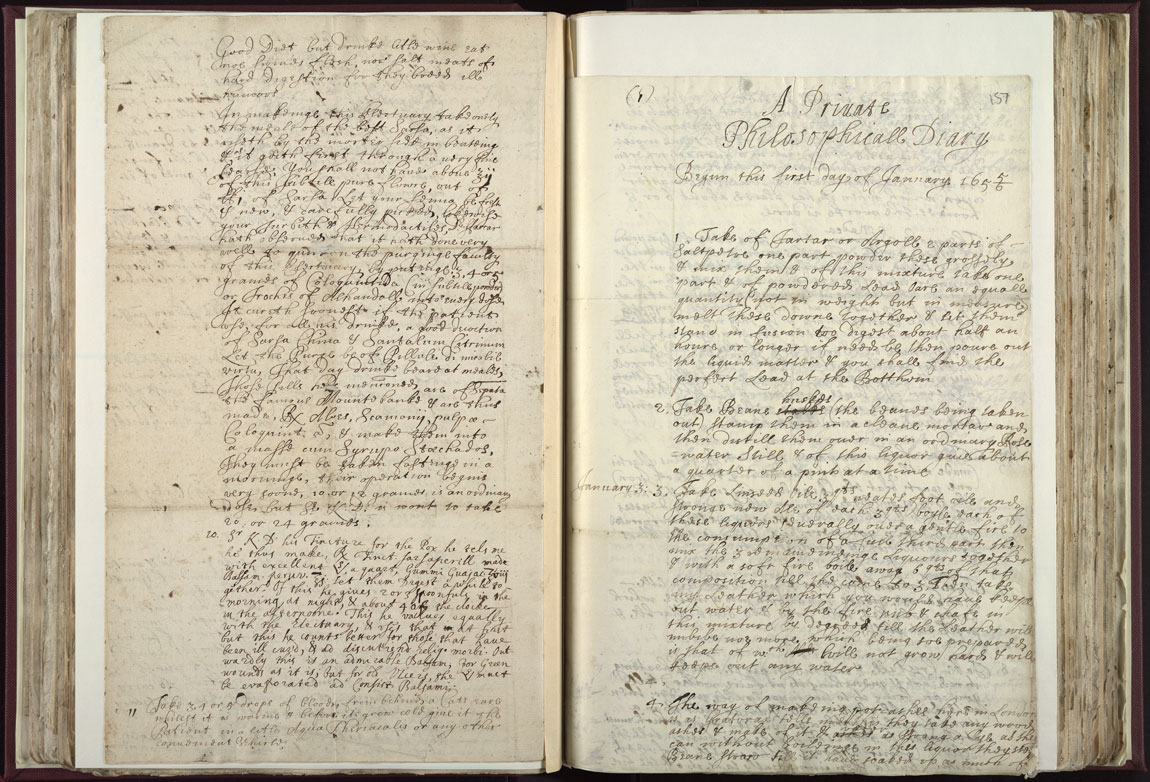 Good Diet but drinke little wine eat
noe
hard digestion for they breed ill
humours
In makeinge this Electuary take onely
the meale of the best Sarsa, as it
by the mortar side in beating
& it goeth first through a very fine
You shall not have above
of this subtile pure flower, out of
of Sarsa Let your Senna be fresh
& new, & carefully picked, likewise
your Turbith & Hermodactiles, Dr
hath observed that it hath done very
well to quicken the purginge faculty
of this Electuary, by putting 2, 3, 4 or
graines of Coloquintida (in subtile powder)
or Trochis of Alhandall into every dose
It cureth soonest if the patient
use for all his drinke, a good decoction
of Sarsa China & Santalum Citrinum
Let the Purge be of Pillulæ di
virtu, That day drinke beare at meales,
Those pills mencioned, are of
the famous Mountebanke & are thus
made, ℞ Aloes, Scamony, pulpæ
Coloquint. & make them into
a masse cum Syrupo Stæchados,
They must be taken fastinge in a
morninge, their operation begins
very soone, 10 or 12 graines is an ordinary
dose, but Sr K. D. is wont to take
20, or 24 graines.
10. Sr K D his Tincture for the Pox he tels me
he thus make, ℞ Tinct: Sarsaperill made
with excellent a quart, Gummi Guajaci
Balsam peruv. let them Digest a while to
gether. Of this he gives 2 or 3 spoonfuls in the
morning, at night, & about 4 of the clocke
in the afternoone. This he values equally
with the Electuary, & sfis that at first
but this he counts better for those that have
been ill cur'd, & ad discutiend: reliq: morbi. Out
wardly this is an admirable Balsam, for Green
wounds as it is; but for old Ulcers, the must
be evaporated ad Consist: Balsami.
11 Take 3, 4 or 5 drops of blood from behind a Cats eare
whilest it is warme & before it grow cold give it the
Patient in a little Aqua Theriacalis or any other
convenient vehicle.
(1) 151
A Private
Philosophicall Diary
Begun this first day of January 165 5/6
1 Take of Tartar or Argoll 2 parts of
Saltpetre one part powder these grossely
& mix them & of this mixture take one
part & of powdered Lead Oare an equall
quantity (not in weight but in measure)
melt these downe together & let them
stand in fusion too digest about half an
houre or longer if need be then poure out
the liquid matter & you shall find the
perfect Lead at the Botthom
huskes
2. Take Beane (the beanes being taken
out) stamp them in a cleane mortar and
then distill them over in an ordinary Rose
-water Still & of this liquor give about
a quarter of a pint at a time
January 3: 3. Take Linseed oile 3 qts neates foot oile and
stronge new Ale of each 3 qts boyle each of
these liquors severally over a gentle fire to
the consumption of a full third part then
mix the 3 remaindeinge Liquors together
& with a soft fire boile away 6 qts of that
composition till the come to 3 Then take
any Leather which you would have keepe
out water & by the fire rub & chafe in
this mixture by degrees till the Leather will
imbibe noe more, which being soe prepared
is that of wch will not grow hard & will
keepe out any water
4. The way of makeing pot ashes here in London
as they take any wood
ashes & make of it as strong a Lye as they
can without boileinge in this liquor they steep
Beane straw till it have soaked up as much of